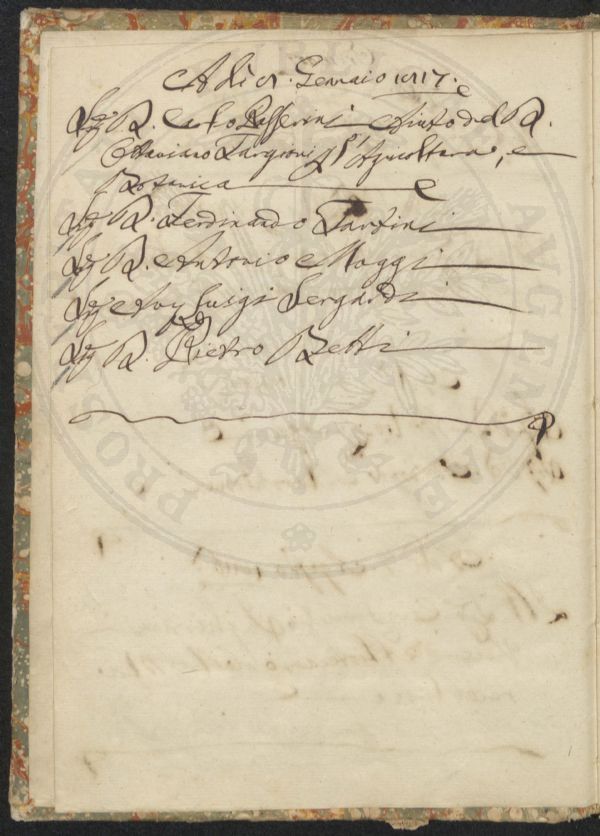 Adi 8. Gennaio 1817.
Sig. D. Carlo Passerini Aiuto del D.
Ottaviano Targioni p. l'Agricoltura, e
Botanica
Sig. D. Ferdinando Tartini
Sig. D. Antonio Maggi
Sig. Luigi Sergardi
Sig. D. Pietro Betti